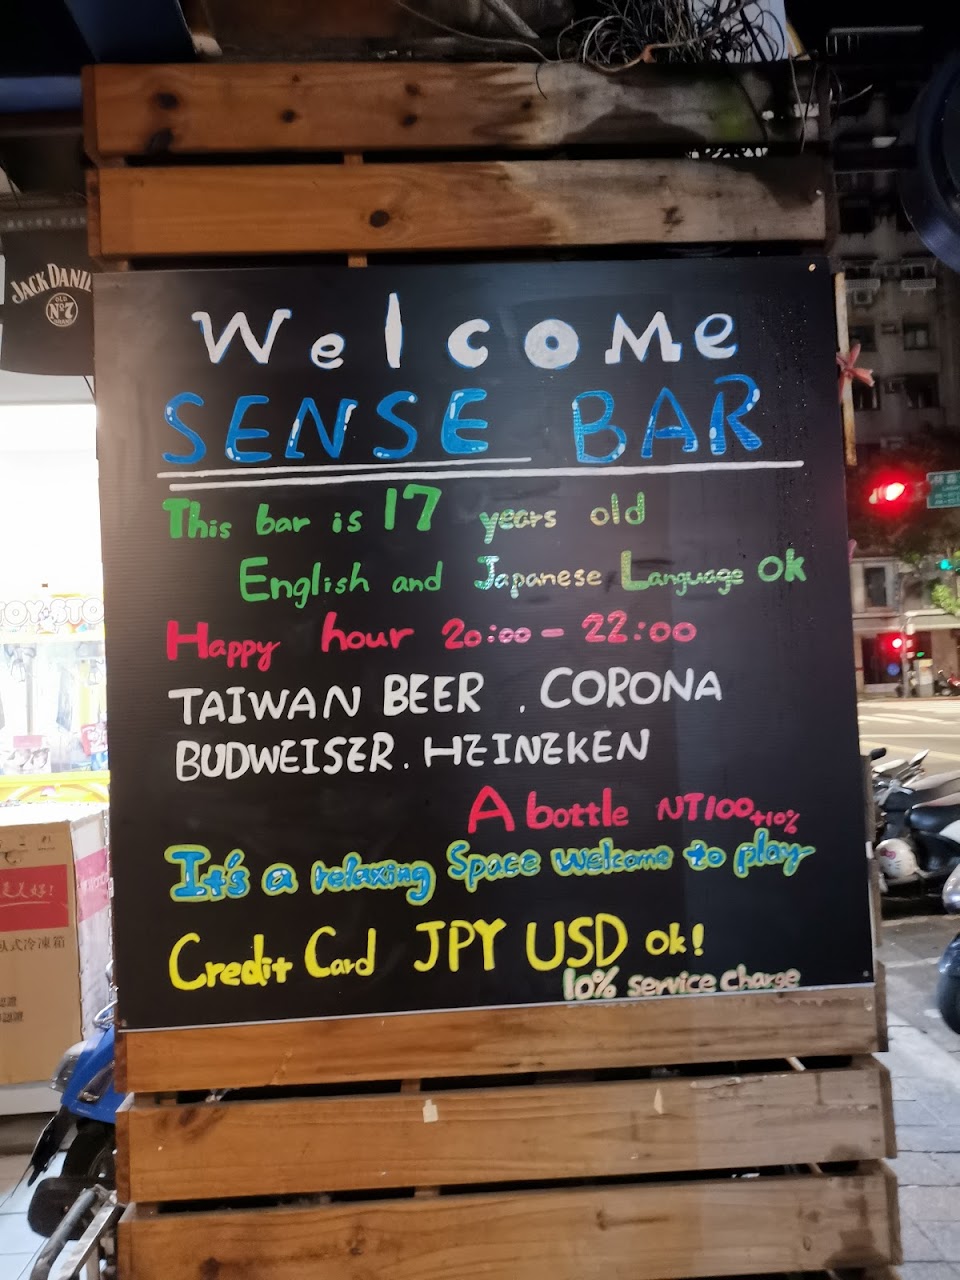 JACK DANIE
OLD
Nº7
BRAND
Welcome
SENSE BAR
This bar is 17 years old
English and Japanese Language ok
Happy hour 20:00 - 22:00
TAIWAN BEER . CORONA
BUDWEISER. HEINEKEN
A bottle NT100+10%
It's a relaxing Space welcome to play
Credit Card JPY USD ok!
10% service charge
TOY STO
式冷凍箱